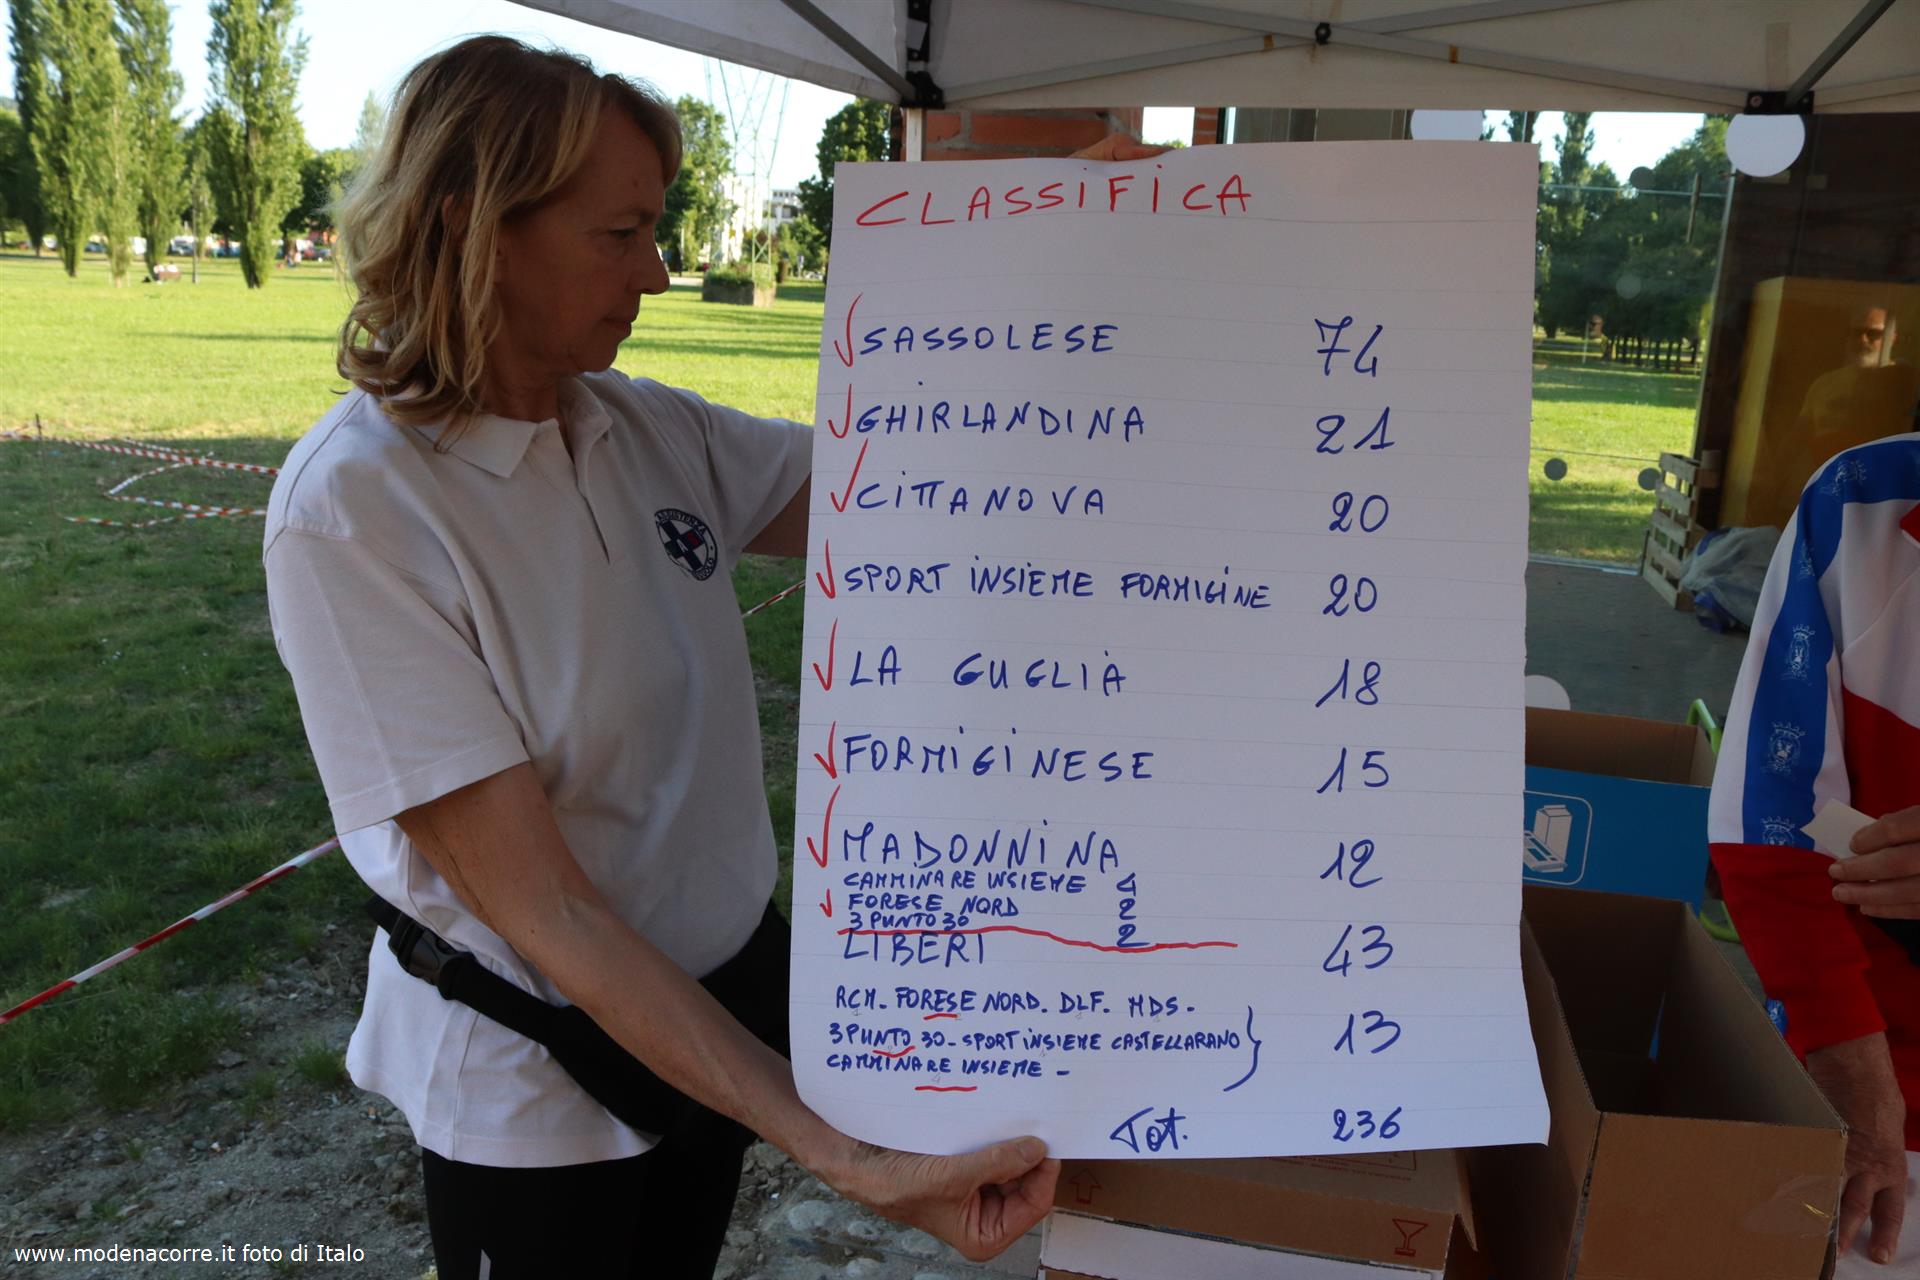 CLASSIFICA
SASSOLESE 74
GHIRLANDINA 21
CITTANOVA 20
SPORT INSIEME FORMIGINE 20
LA GUGLIA 18
FORMIGINESE 15
MADONNINA 12
CAMMINARE INSIEME 4
FORESE NORD 2
3 PUNTO 30 2
LIBERI 43
RCM. FORESE NORD. DLF. MDS.
3 PUNTO 30 - SPORT INSIEME CASTELLARANO } 13
CAMMINARE INSIEME -
Tot. 236
ASSISTENZA
www.modenacorre.it foto di Italo